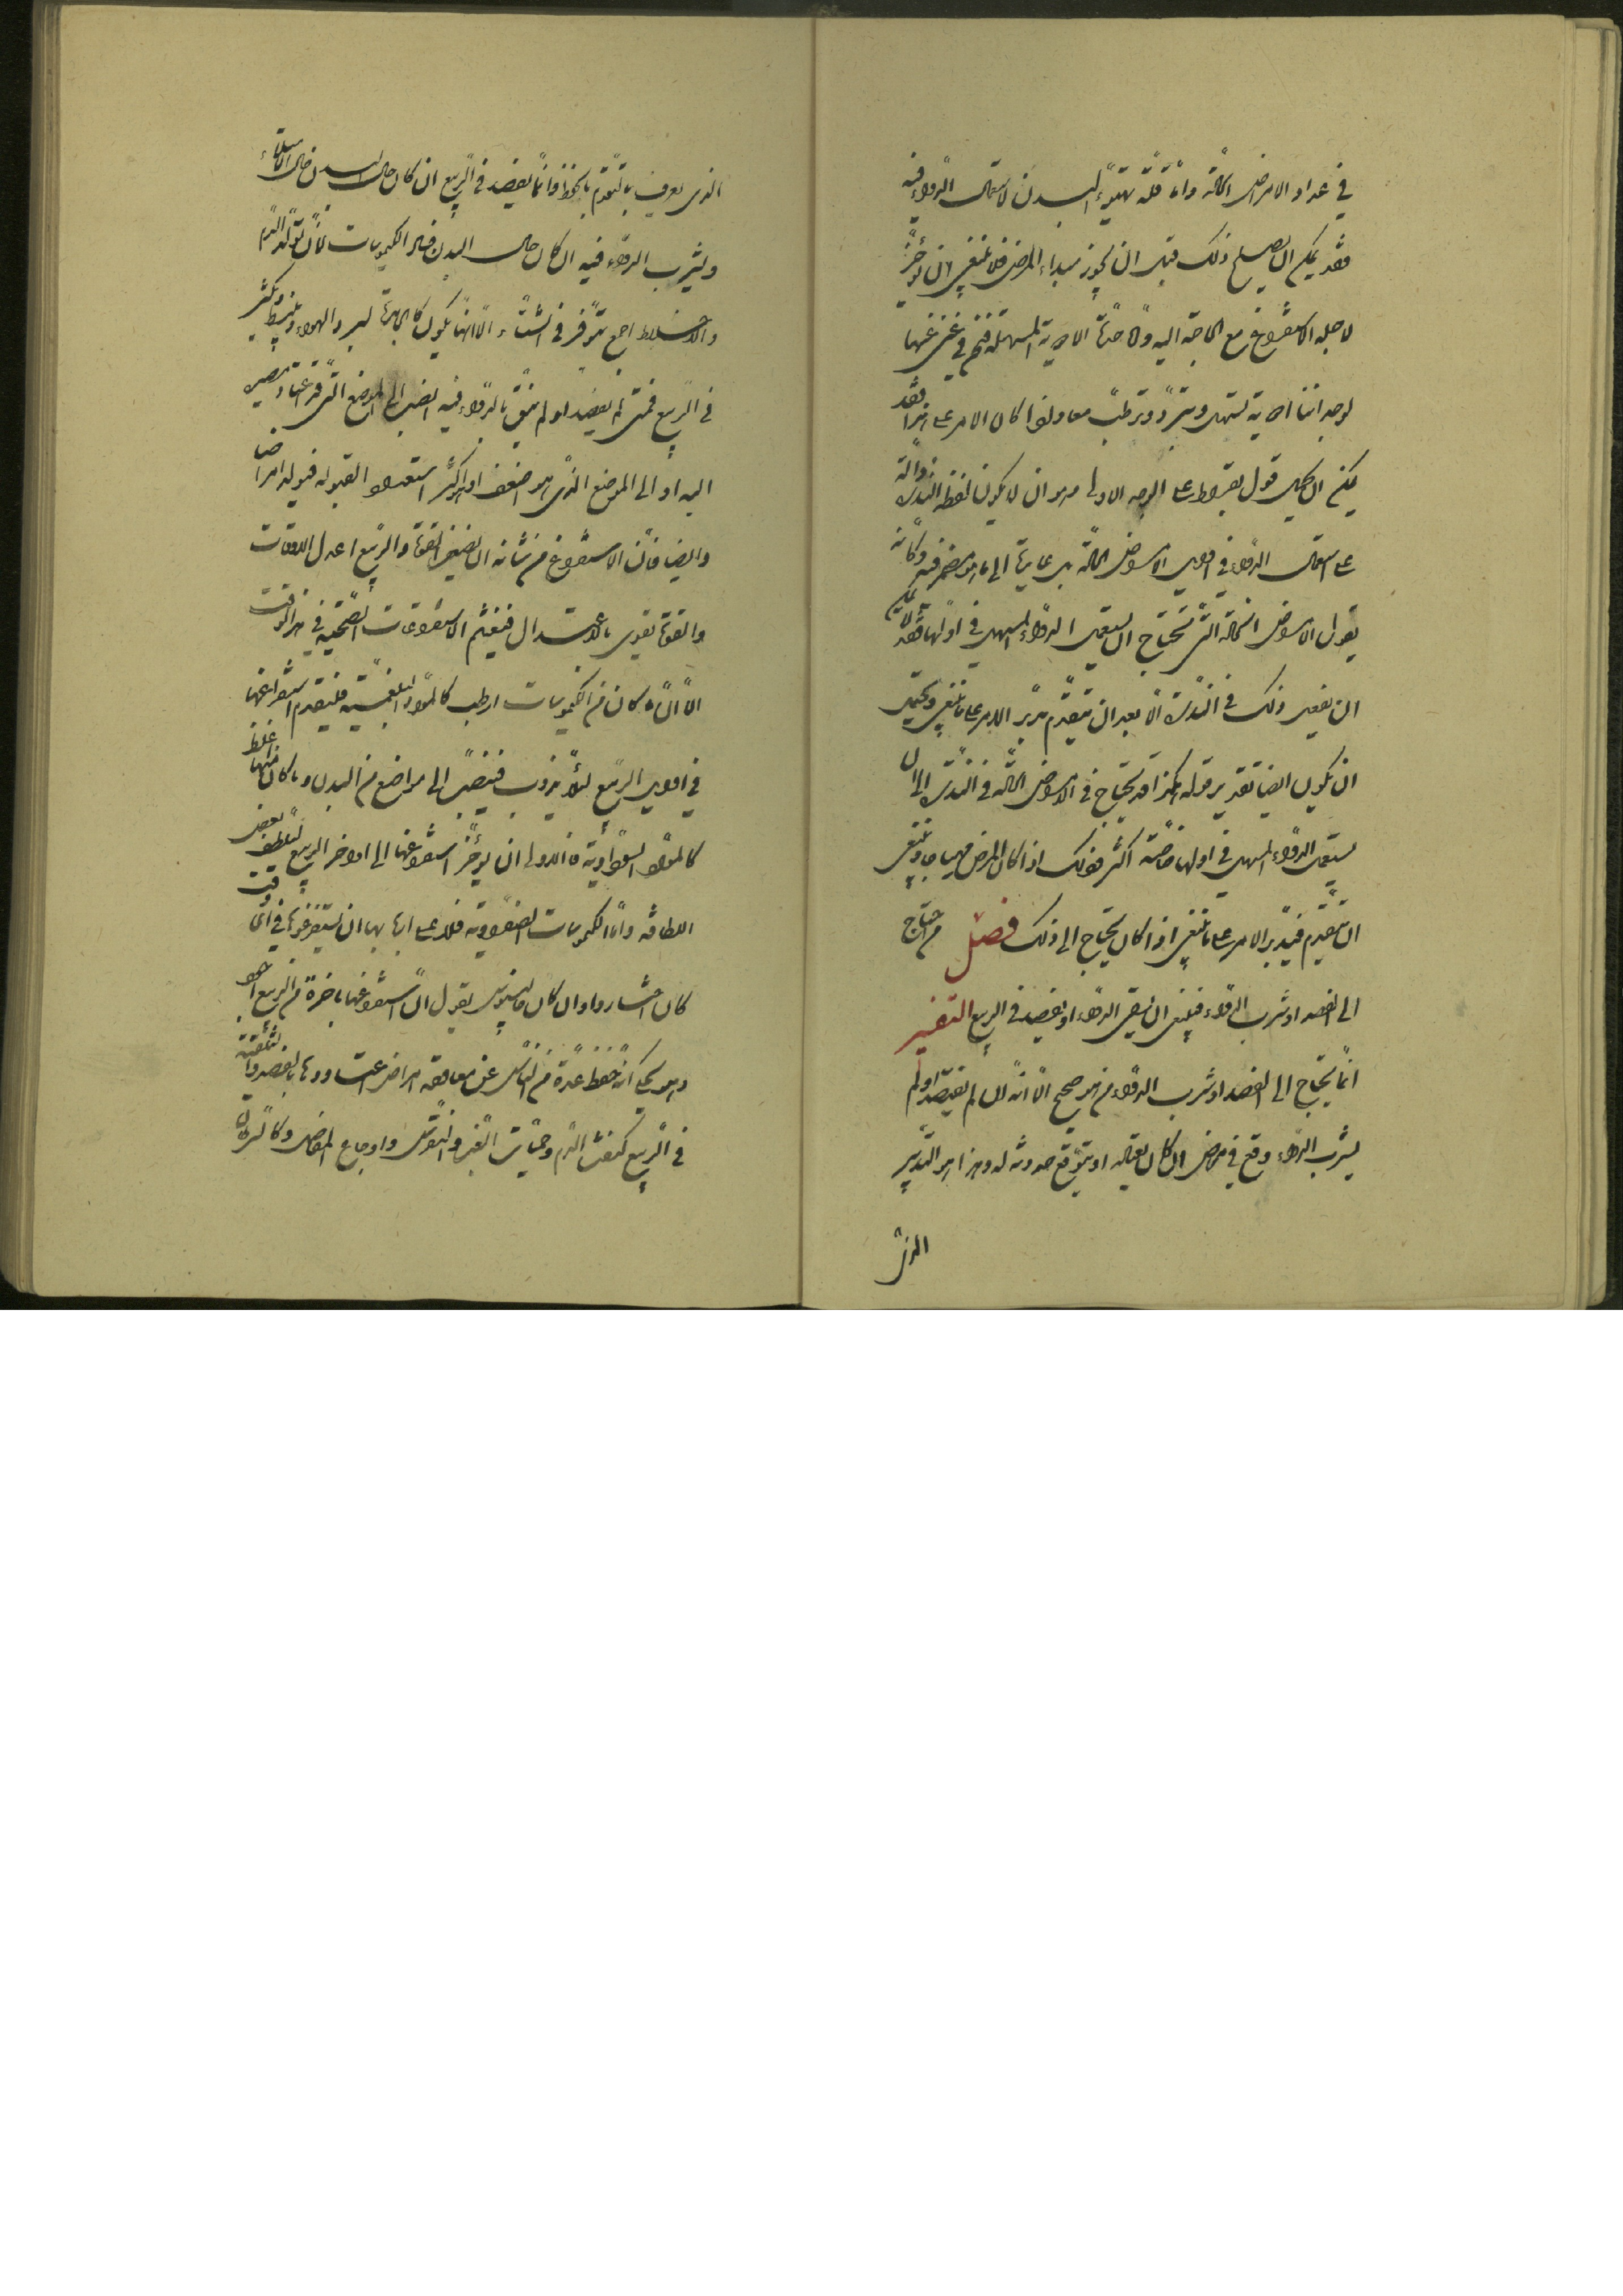 في عداد الامراض الحادّة وامّا قلّة تهيّؤ البدن لاستعمال الدّواء فيه
فقد يمكن ان يصلح ذلك قبل ان يجوز مبداء المرض فلا ينبغي ان يؤخّر
لاجله الاستفراغ مع الحاجة اليه وامّا الادوية المسهلة
لوجود ادوية تسهل وتبرّد وترطّب معا ولهذا كان الامر على هذا فقد
يمكن ان يحمل قول بقراط على الوجه الاول وهو ان لا يكون لفظة النّدرة دالّة
على استعمال الدّواء في اوايل الامراض الحادّة بل عايدة الى ما هو مضمر فيه وكانّه
يقول الامراض الحادّة التى تحتاج ان يستعمل الدّواء المسهل في اوّلها
ان يفعل ذلك في النّدرة الّا بعد ان يتقدّم فيدبّر الامر على ما ينبغي ويحتمل
ان يكون ايضا تقدير قوله هكذا قد يحتاج في الامراض الحادّة في النّدرة الى ان
يستعمل الدّواء المسهل في اولها خاصّة اكثر ذلك اذا كان المرض مهياجا وينبغي
ان يتقدّم فيدبّر الامر على ما ينبغي اذا كان يحتاج الى ذلك فصل من احتاج
الى الفصد او شرب الدّواء فينبغي ان يسقى الدّواء او يفصد في الربيع التفسير
انّما يحتاج الى الفصد او شرب الدّواء من هو صحيح الّا انّه ان لم يفتصد او لم
يشرب الدّواء وقع في مرض ان كان يعتاده او يتوقّع حدوثه له وهذا هو التّدبير
الذى
الذى يعرف بالتّقدّم بالحفظ وانّما يفصد في الرّبيع ان كان حال البدن حال الامتلاء
ويشرب الدّواء فيه ان كان حال البدن الكيموسات لانّ تولّد الدّم
والاخلاط اجمع يتوفّر في الشتاء الّا انّها يكون كالجامدة لبرد الهواء وينبسط ويكثر
في الرّبيع فمتى لم يفصد او لم ينقّ بالدّواء فيه انصبّ الى الموضع التى قد اعتاد يصير
اليه او الى الموضع الذى هو اضعف او اكثر استعدادا لقبوله فيولّد امراضا
وايضا فانّ الاستفراغ من شانه ان يضعف القوّة والربيع اعدل الاوقات
والقوّة تقوى بالاعتدال فيغتنم الاستفراغات الصّحيّة في هذا الوقت
الّا انّ ما كان من الكيموسات ارطب كالموادّ البلغميّة فليقدم استفراغها
في اوايل الربيع لئلّا يذوب فينصبّ الى مواضع من البدن وما كان منها اغلظ
كالموادّ السّوداويّة فالاولى ان يؤخّر استفراغها الى اواخر الربيع لتلطف بعض
اللطافه وامّا الكيموسات الصّفراويّة فلا على اربابها ان يستفرغوها في اىّ وقت
كان شاءوا وان كان جالينوس يقول انّ استفراغها باخرة من الربيع اجود
وهو يحكى انّه حفظ عدّة من النّاس عن معاودة امراض اعتادوها بالفصد والتّنقية
في الرّبيع كنفث الدّم وحمّيات الغبّ والنّقرس واوجاع المفاصل وكالسّرطان